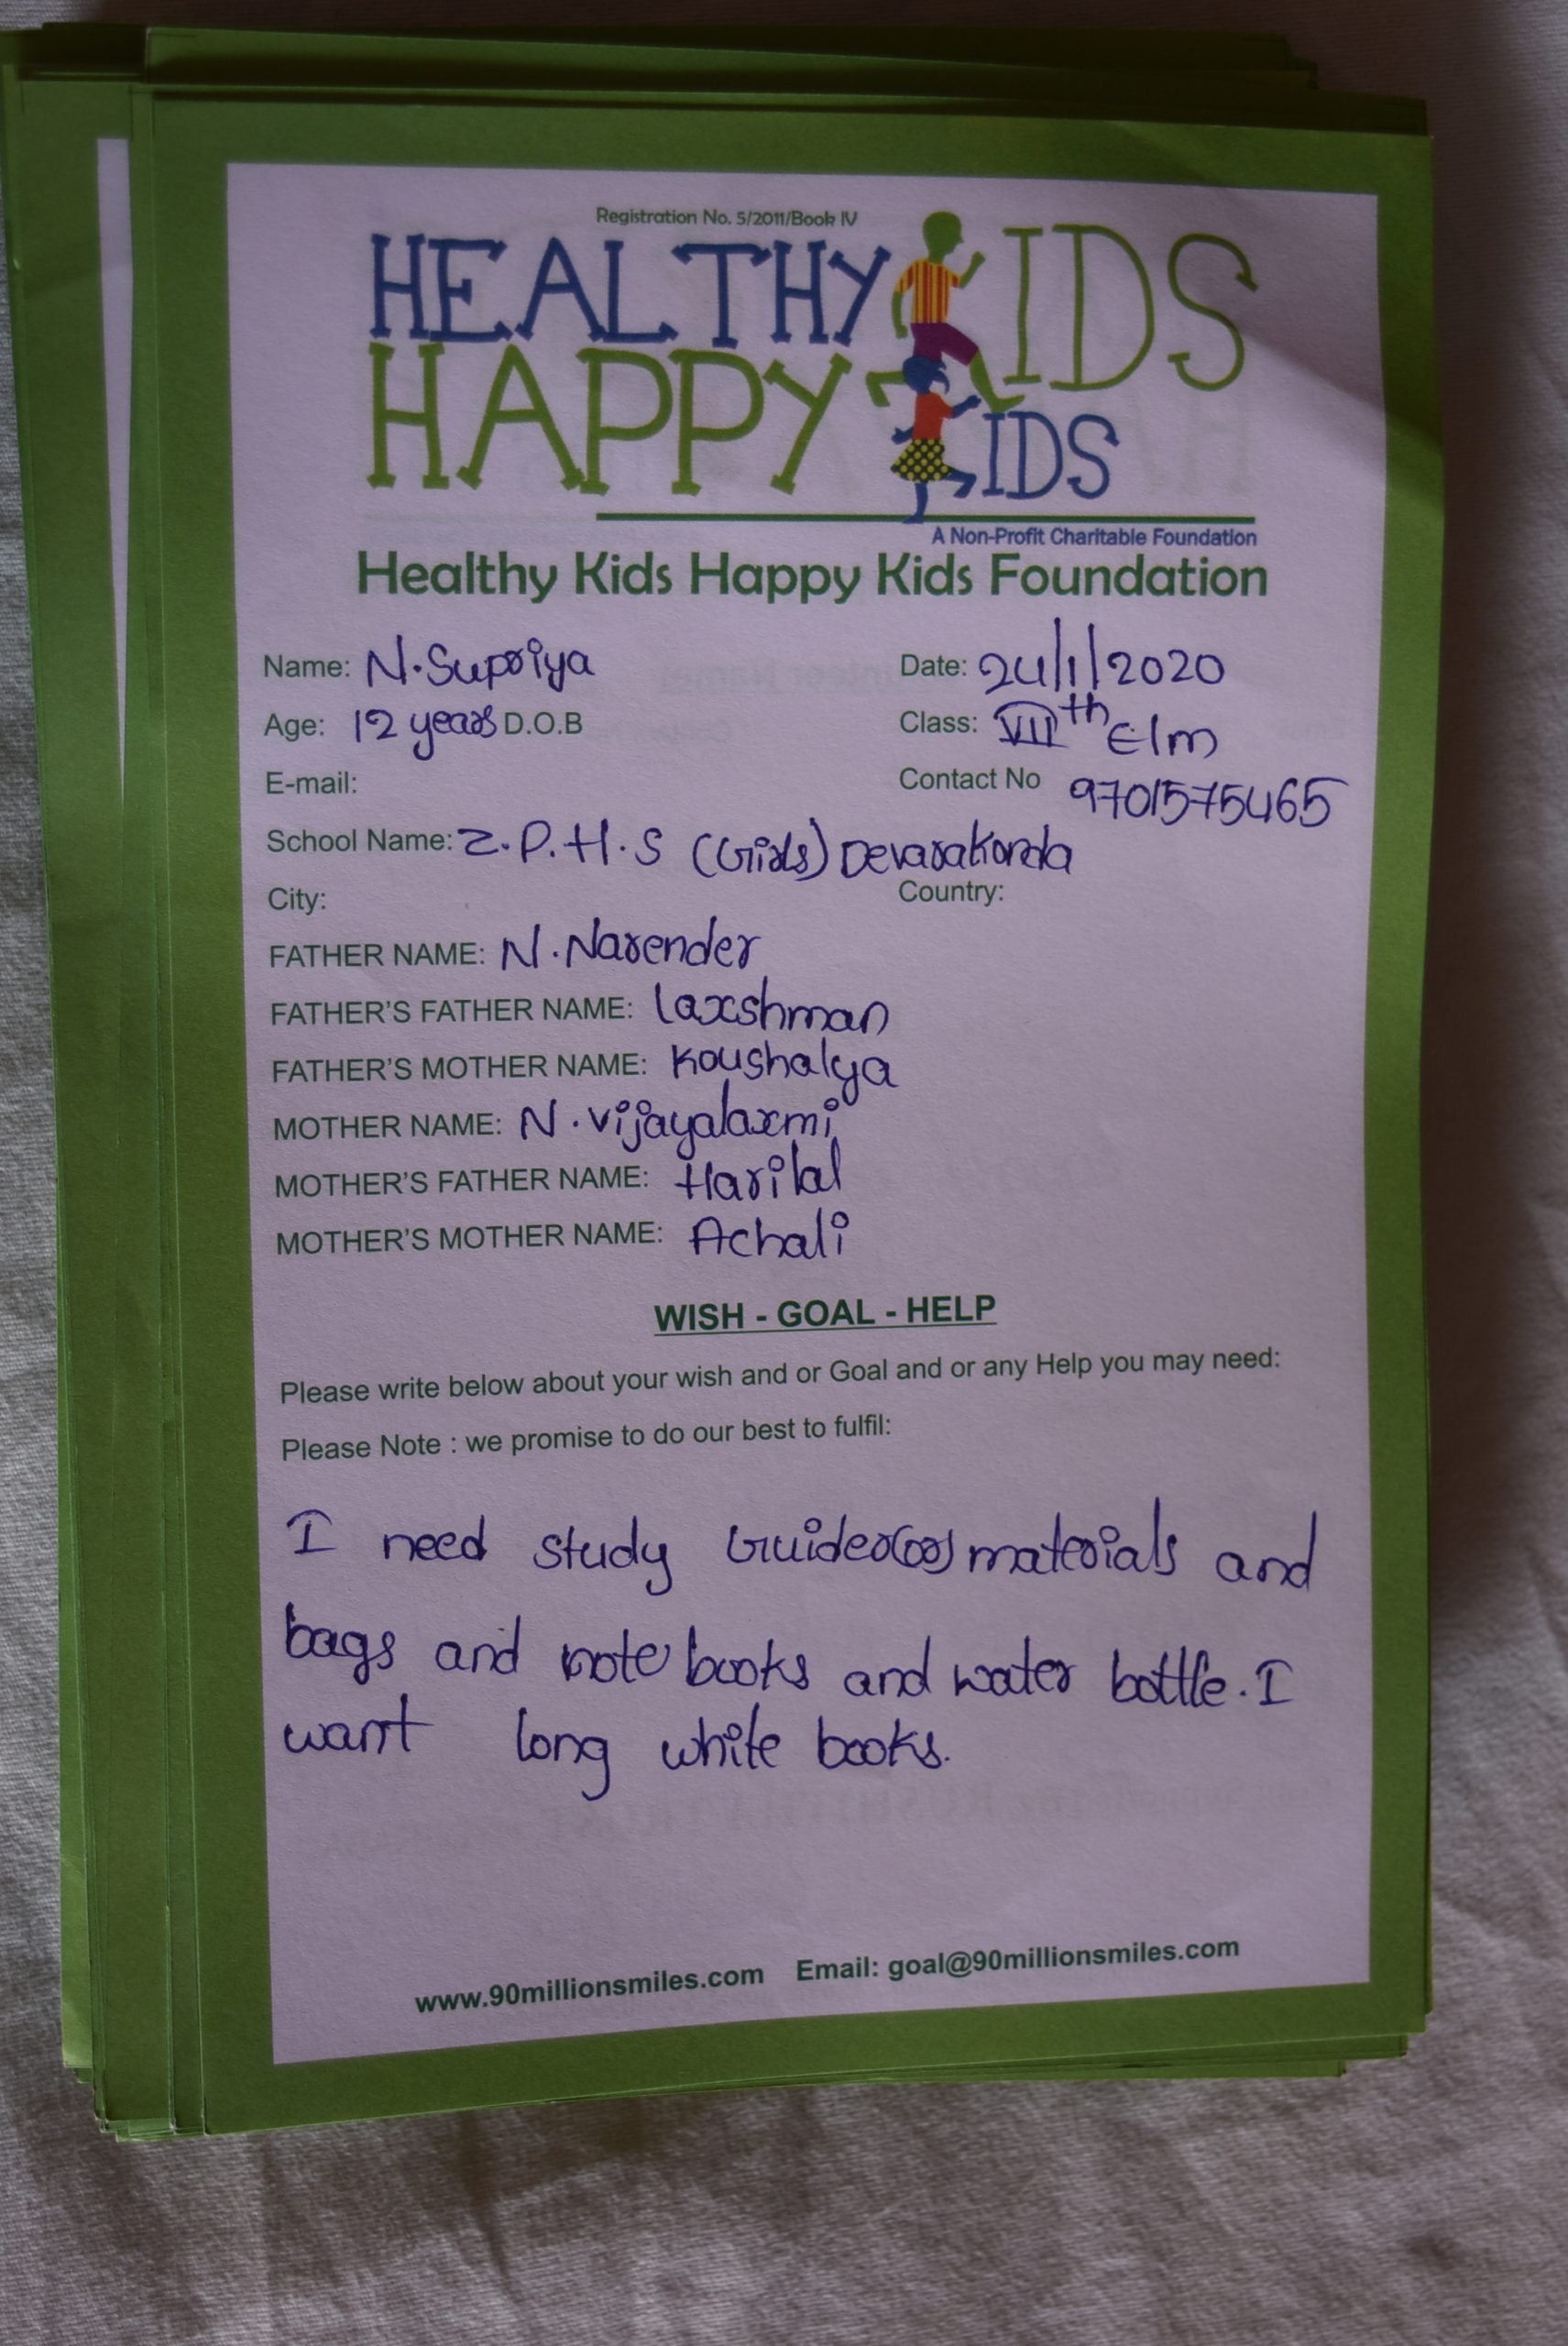 Registration No. 5/2011/Book IV
HEALTHY KIDS
HAPPY KIDS
A Non-Profit Charitable Foundation
Healthy Kids Happy Kids Foundation
Name: N.Supriya Date: 24/1/2020
Age: 12 years D.O.B Class: VIIth E/m
E-mail: Contact No 9701575465
School Name: Z.P.H.S (Girls) Devarakonda
City: Country:
FATHER NAME: N.Narender
FATHER'S FATHER NAME: laxshman
FATHER'S MOTHER NAME: koushalya
MOTHER NAME: N.vijayalaxmi
MOTHER'S FATHER NAME: Harilal
MOTHER'S MOTHER NAME: Achali
WISH - GOAL - HELP
Please write below about your wish and or Goal and or any Help you may need:
Please Note : we promise to do our best to fulfil:
I need study Guider(or) materials and
bags and note books and water bottle. I
want long white books.
www.90millionsmiles.com Email: goal@90millionsmiles.com